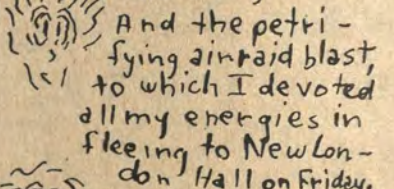 And the petri-
fying airraid blast,
to which I devoted
all my energies in
fleeing to New Lon-
don Hall on Friday.